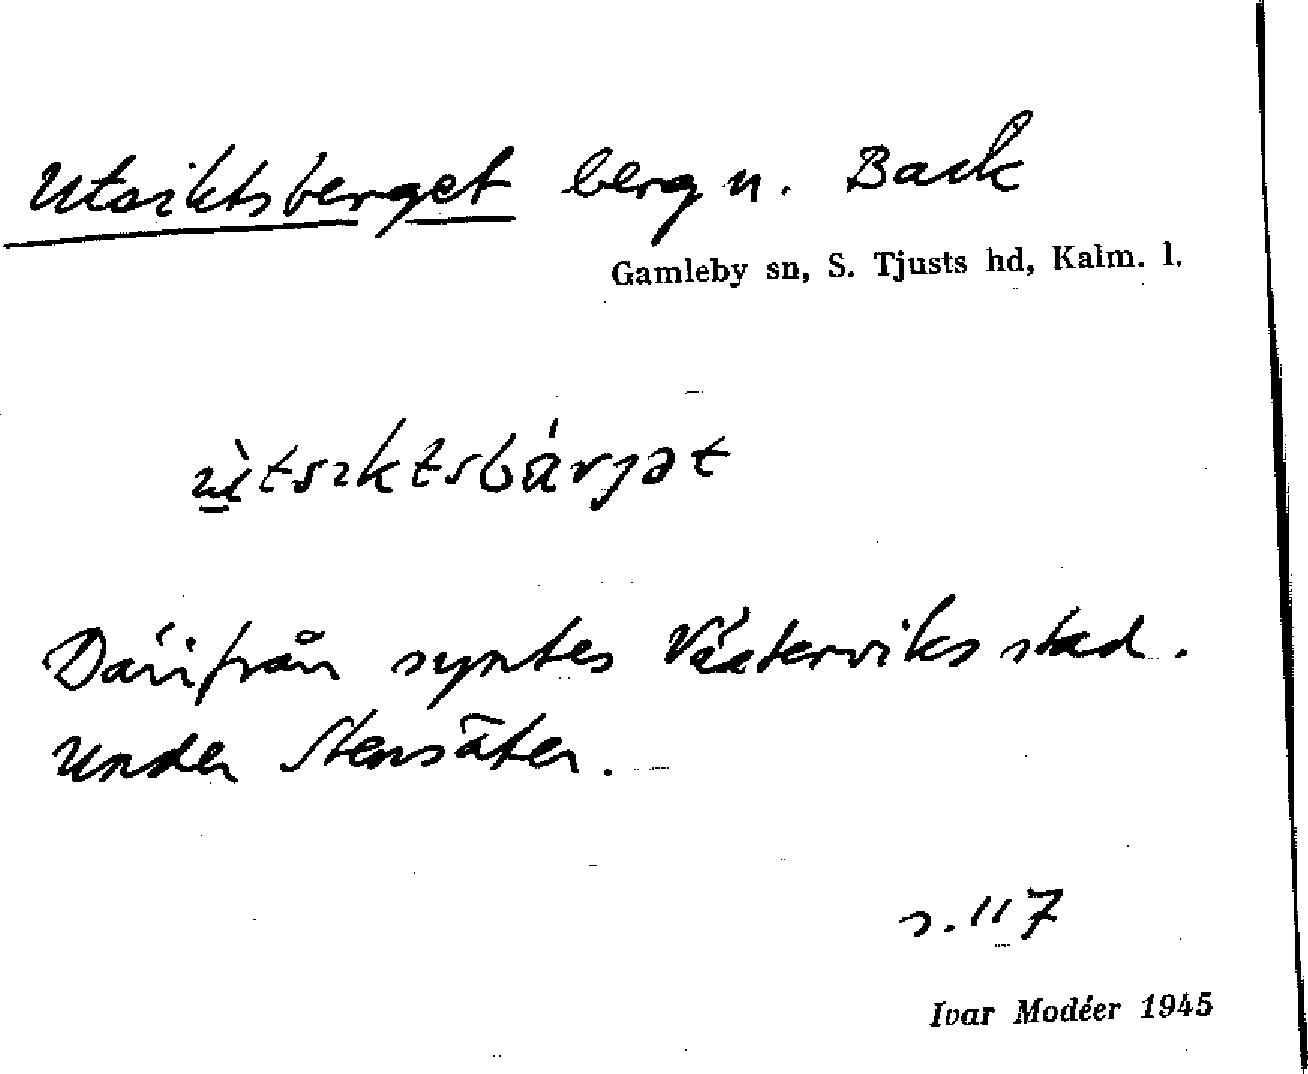 Utsiktsberget berg n. Back
Gamleby sn, S. Tjusts hd, Kalm. l.
ùtsıktsbárjət
Därifrån syntes Västerviks stad.
Under Stensäter.
s. 117
Ivar Modéer 1945